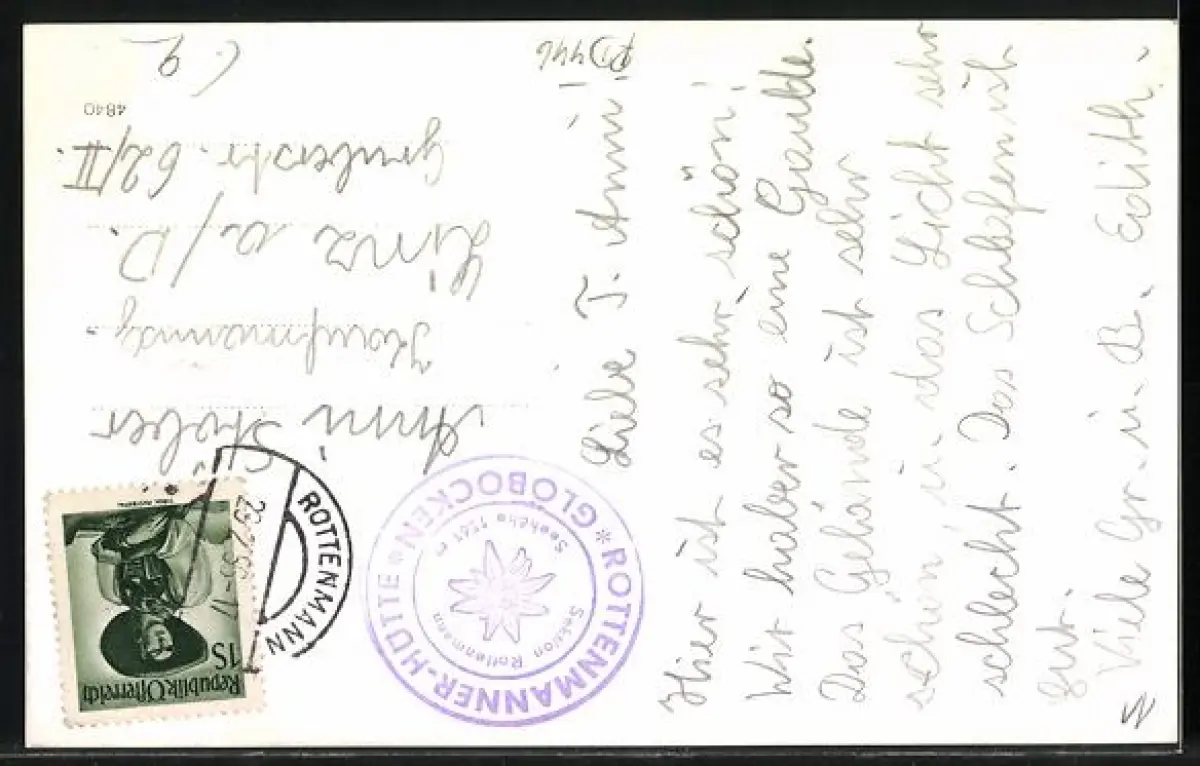 Liebe T. Anni!
Hier ist es sehr schön!
Wir haben so eine Gaude.
Das Gelände ist sehr
schön u. das Licht sehr
schlecht. Das Schlafen ist
gut.
Viele Gr. u. B. Edith.
Anni Stöber
Linz a/D.
Gruberstr. 62/II.
4840
Republik Österreich
1S
ROTTENMANN
ROTTENMANNER-HÜTTE
* GLOBOCKEN *
Sektion Rottenmann
Seehöhe